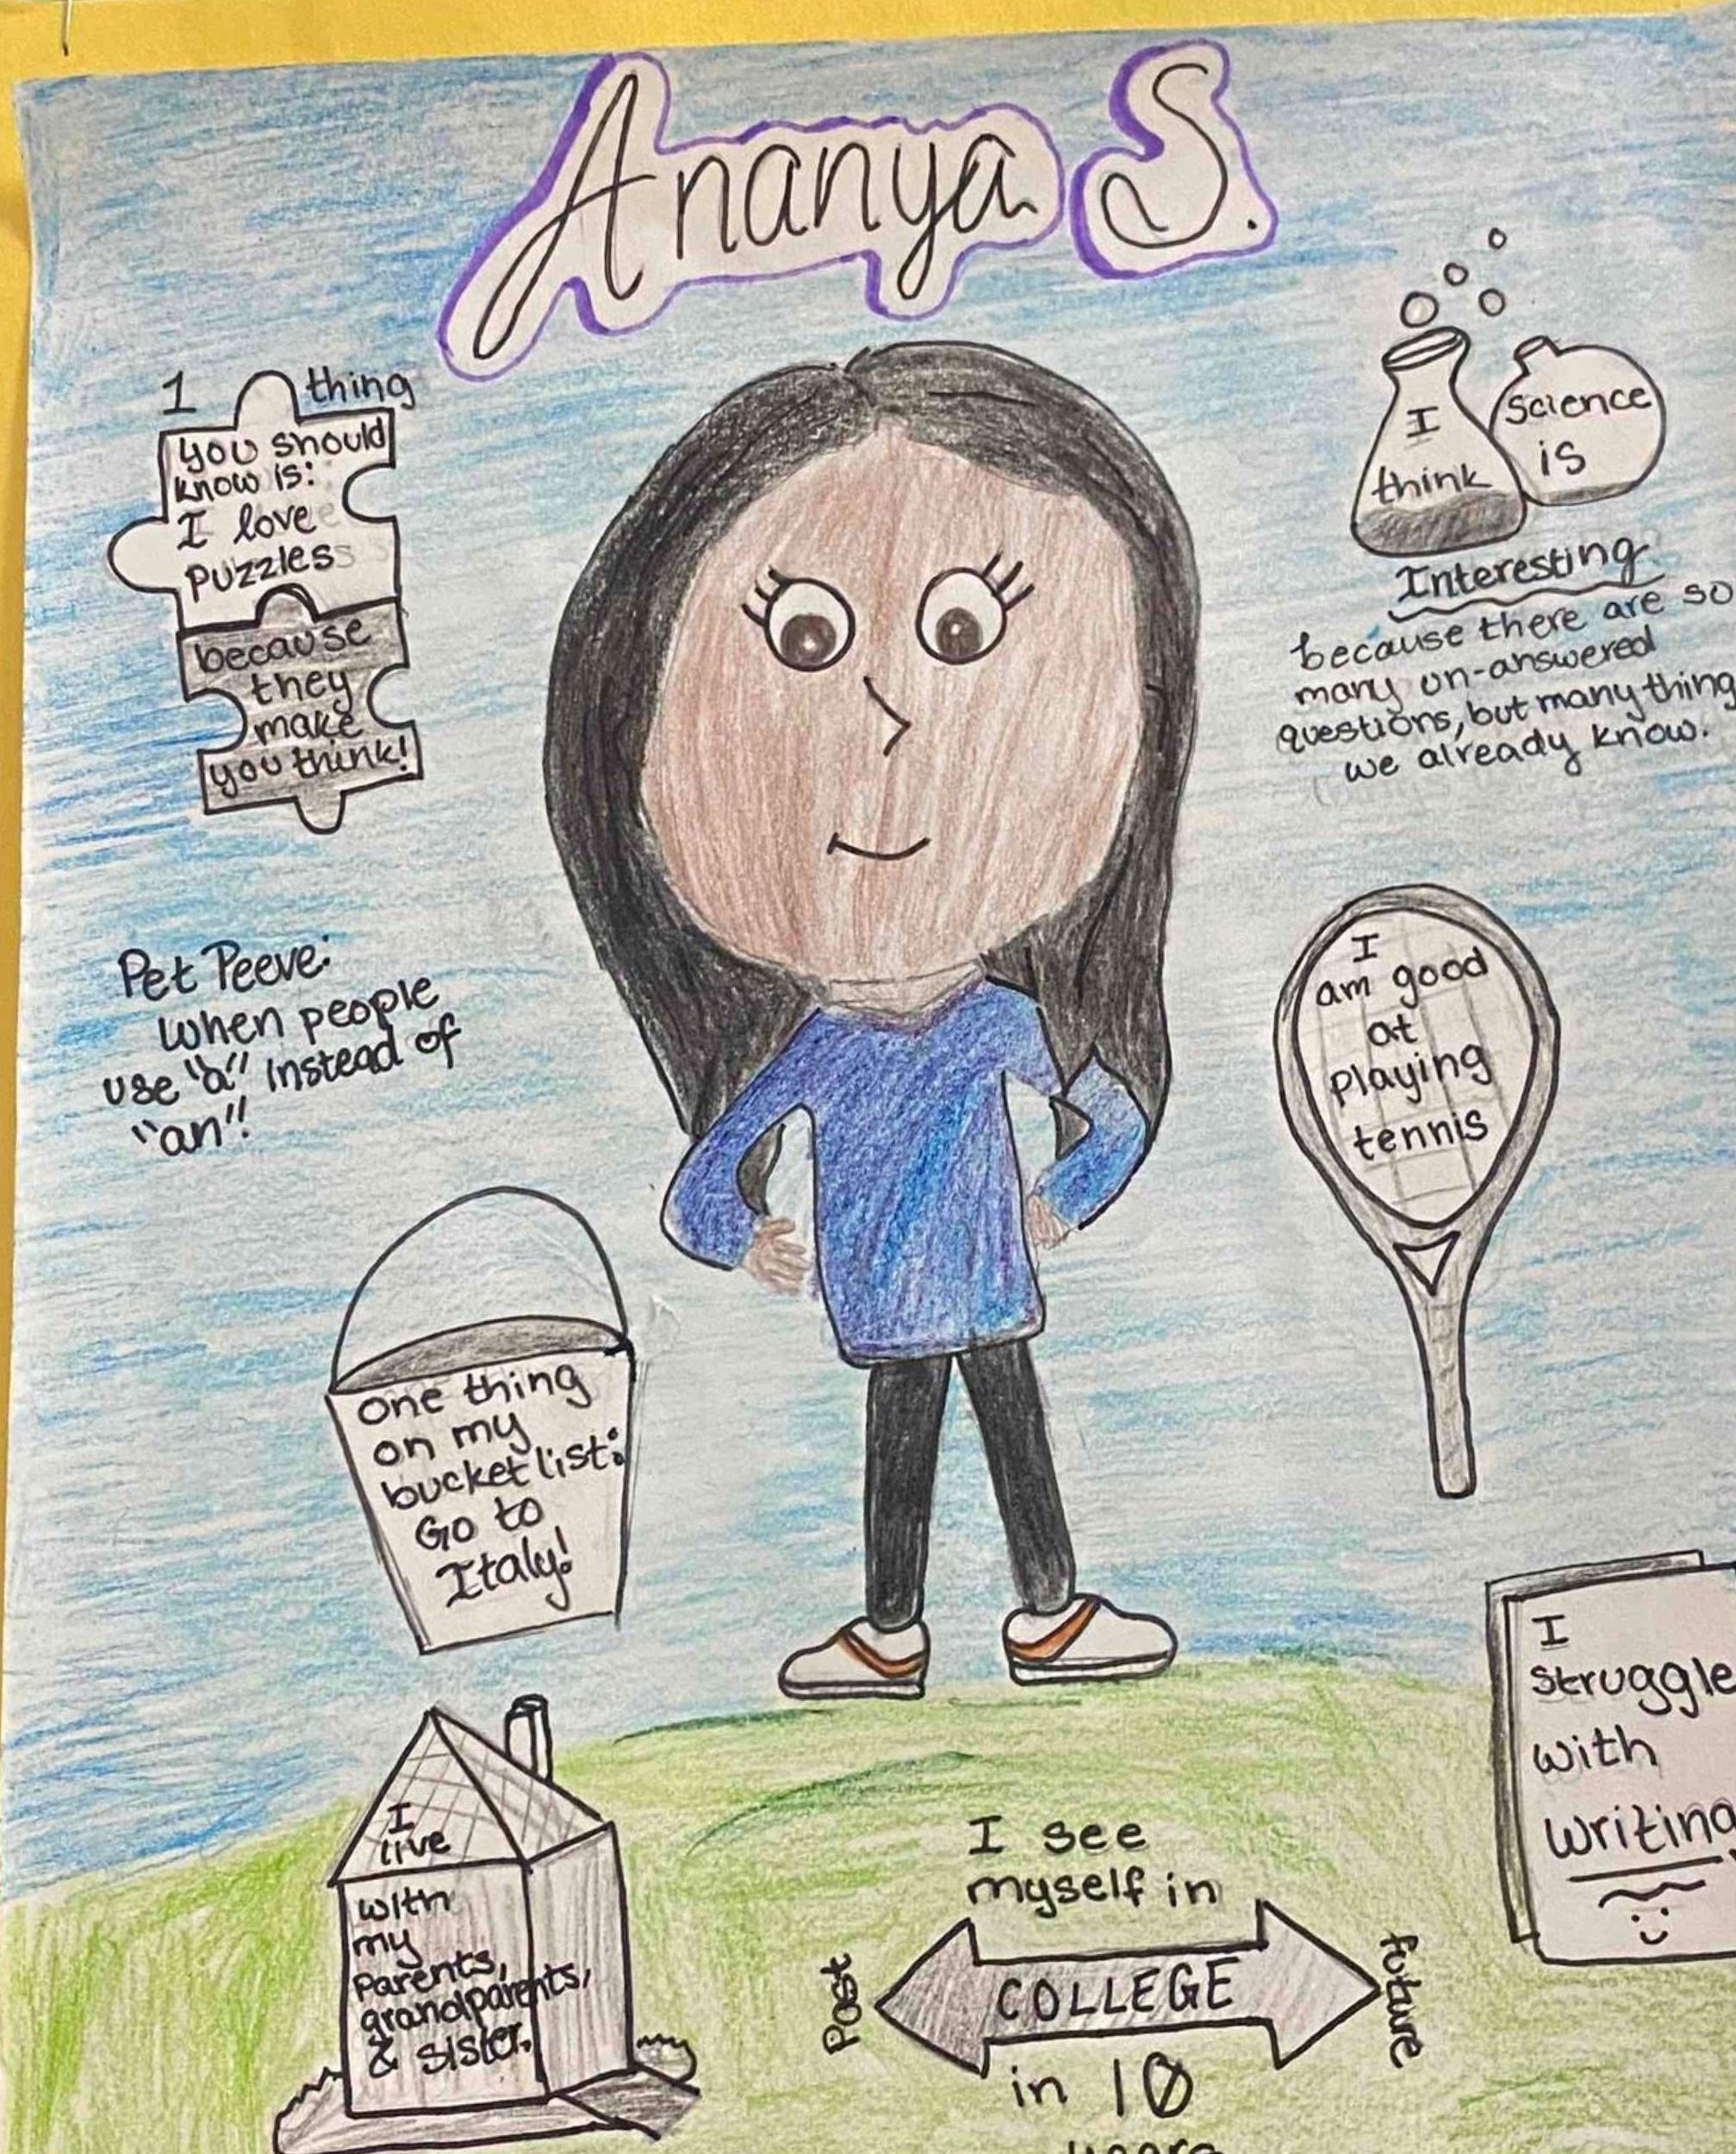 Ananya S.
1 thing
you should
know is:
I love
puzzles
because
they
make
you think!
I
think
science
is
Interesting
because there are so
many un-answered
questions, but many thing
we already know.
Pet Peeve:
when people
use "a" instead of
"an"!
I
am good
at
playing
tennis
One thing
on my
bucket list:
Go to
Italy!
I
struggle
with
writing
I
live
with
my
parents,
grandparents,
& sister.
I see
myself in
Past
COLLEGE
future
in 10
years